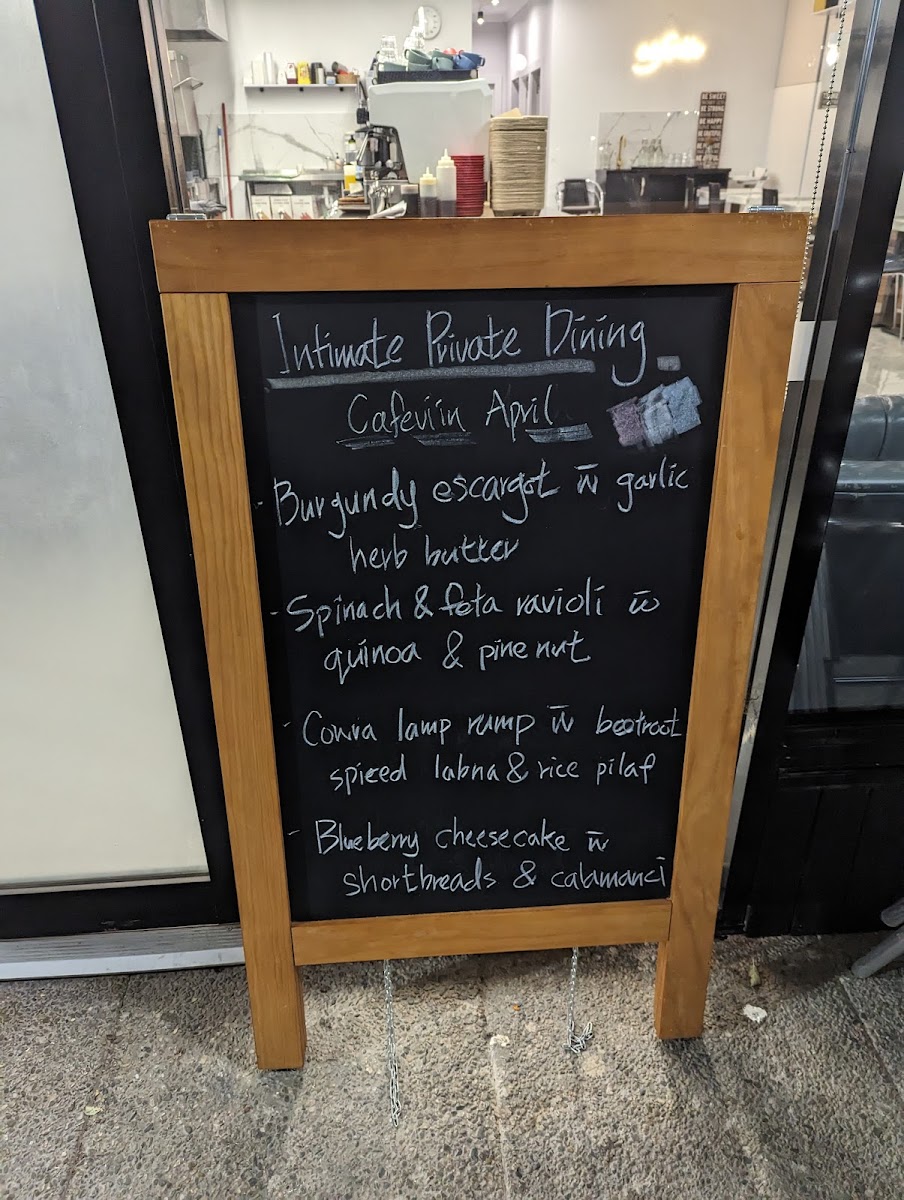 Intimate Private Dining
Cafeviin April
- Burgundy escargot w̄ garlic
herb butter
- Spinach & feta ravioli w̄
quinoa & pine nut
- Cowra lamp rump w̄ beetroot
spiced labna & rice pilaf
- Blueberry cheesecake w̄
shortbreads & calamanci